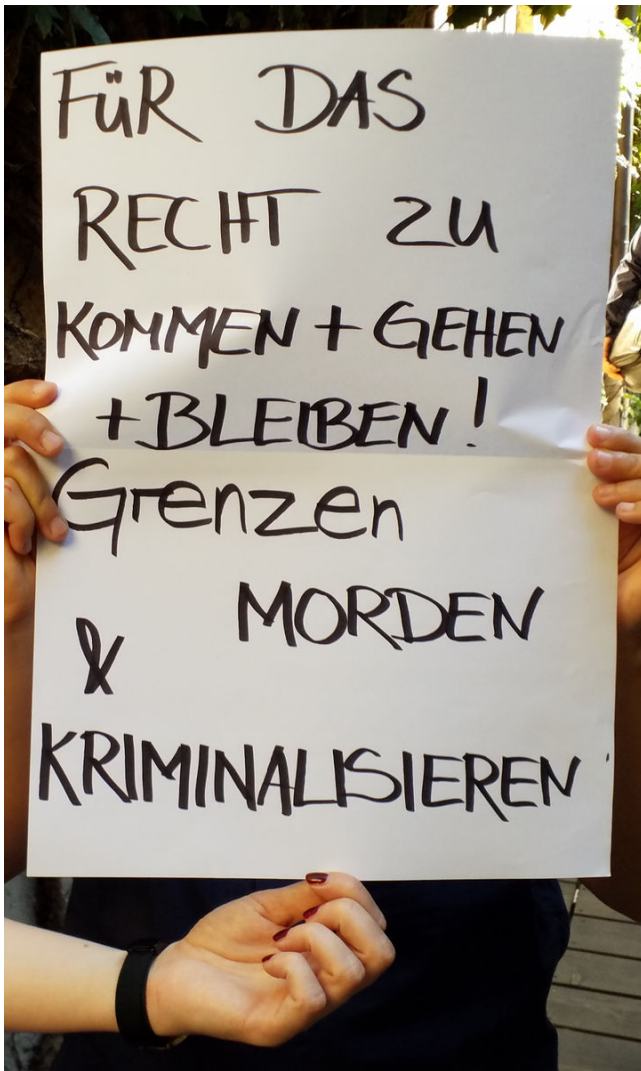 FüR DAS
RECHT ZU
KOMMEN + GEHEN
+ BLEIBEN!
Grenzen
MORDEN
&
KRIMINALISIEREN